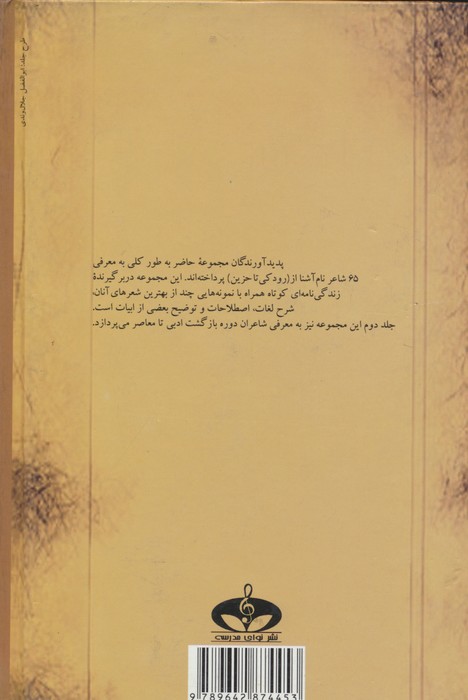 طرح جلد: ابوالفضل جلالوندی
پدیدآورندگان مجموعهٔ حاضر به طور کلی به معرفی
۶۵ شاعر نام‌آشنا از (رودکی تا حزین) پرداخته‌اند. این مجموعه دربرگیرندهٔ
زندگی‌نامه‌ای کوتاه همراه با نمونه‌هایی چند از بهترین شعرهای آنان،
شرح لغات، اصطلاحات و توضیح بعضی از ابیات است.
جلد دوم این مجموعه نیز به معرفی شاعران دوره بازگشت ادبی تا معاصر می‌پردازد.
نشر نوای مدرسه
9 789642 874453